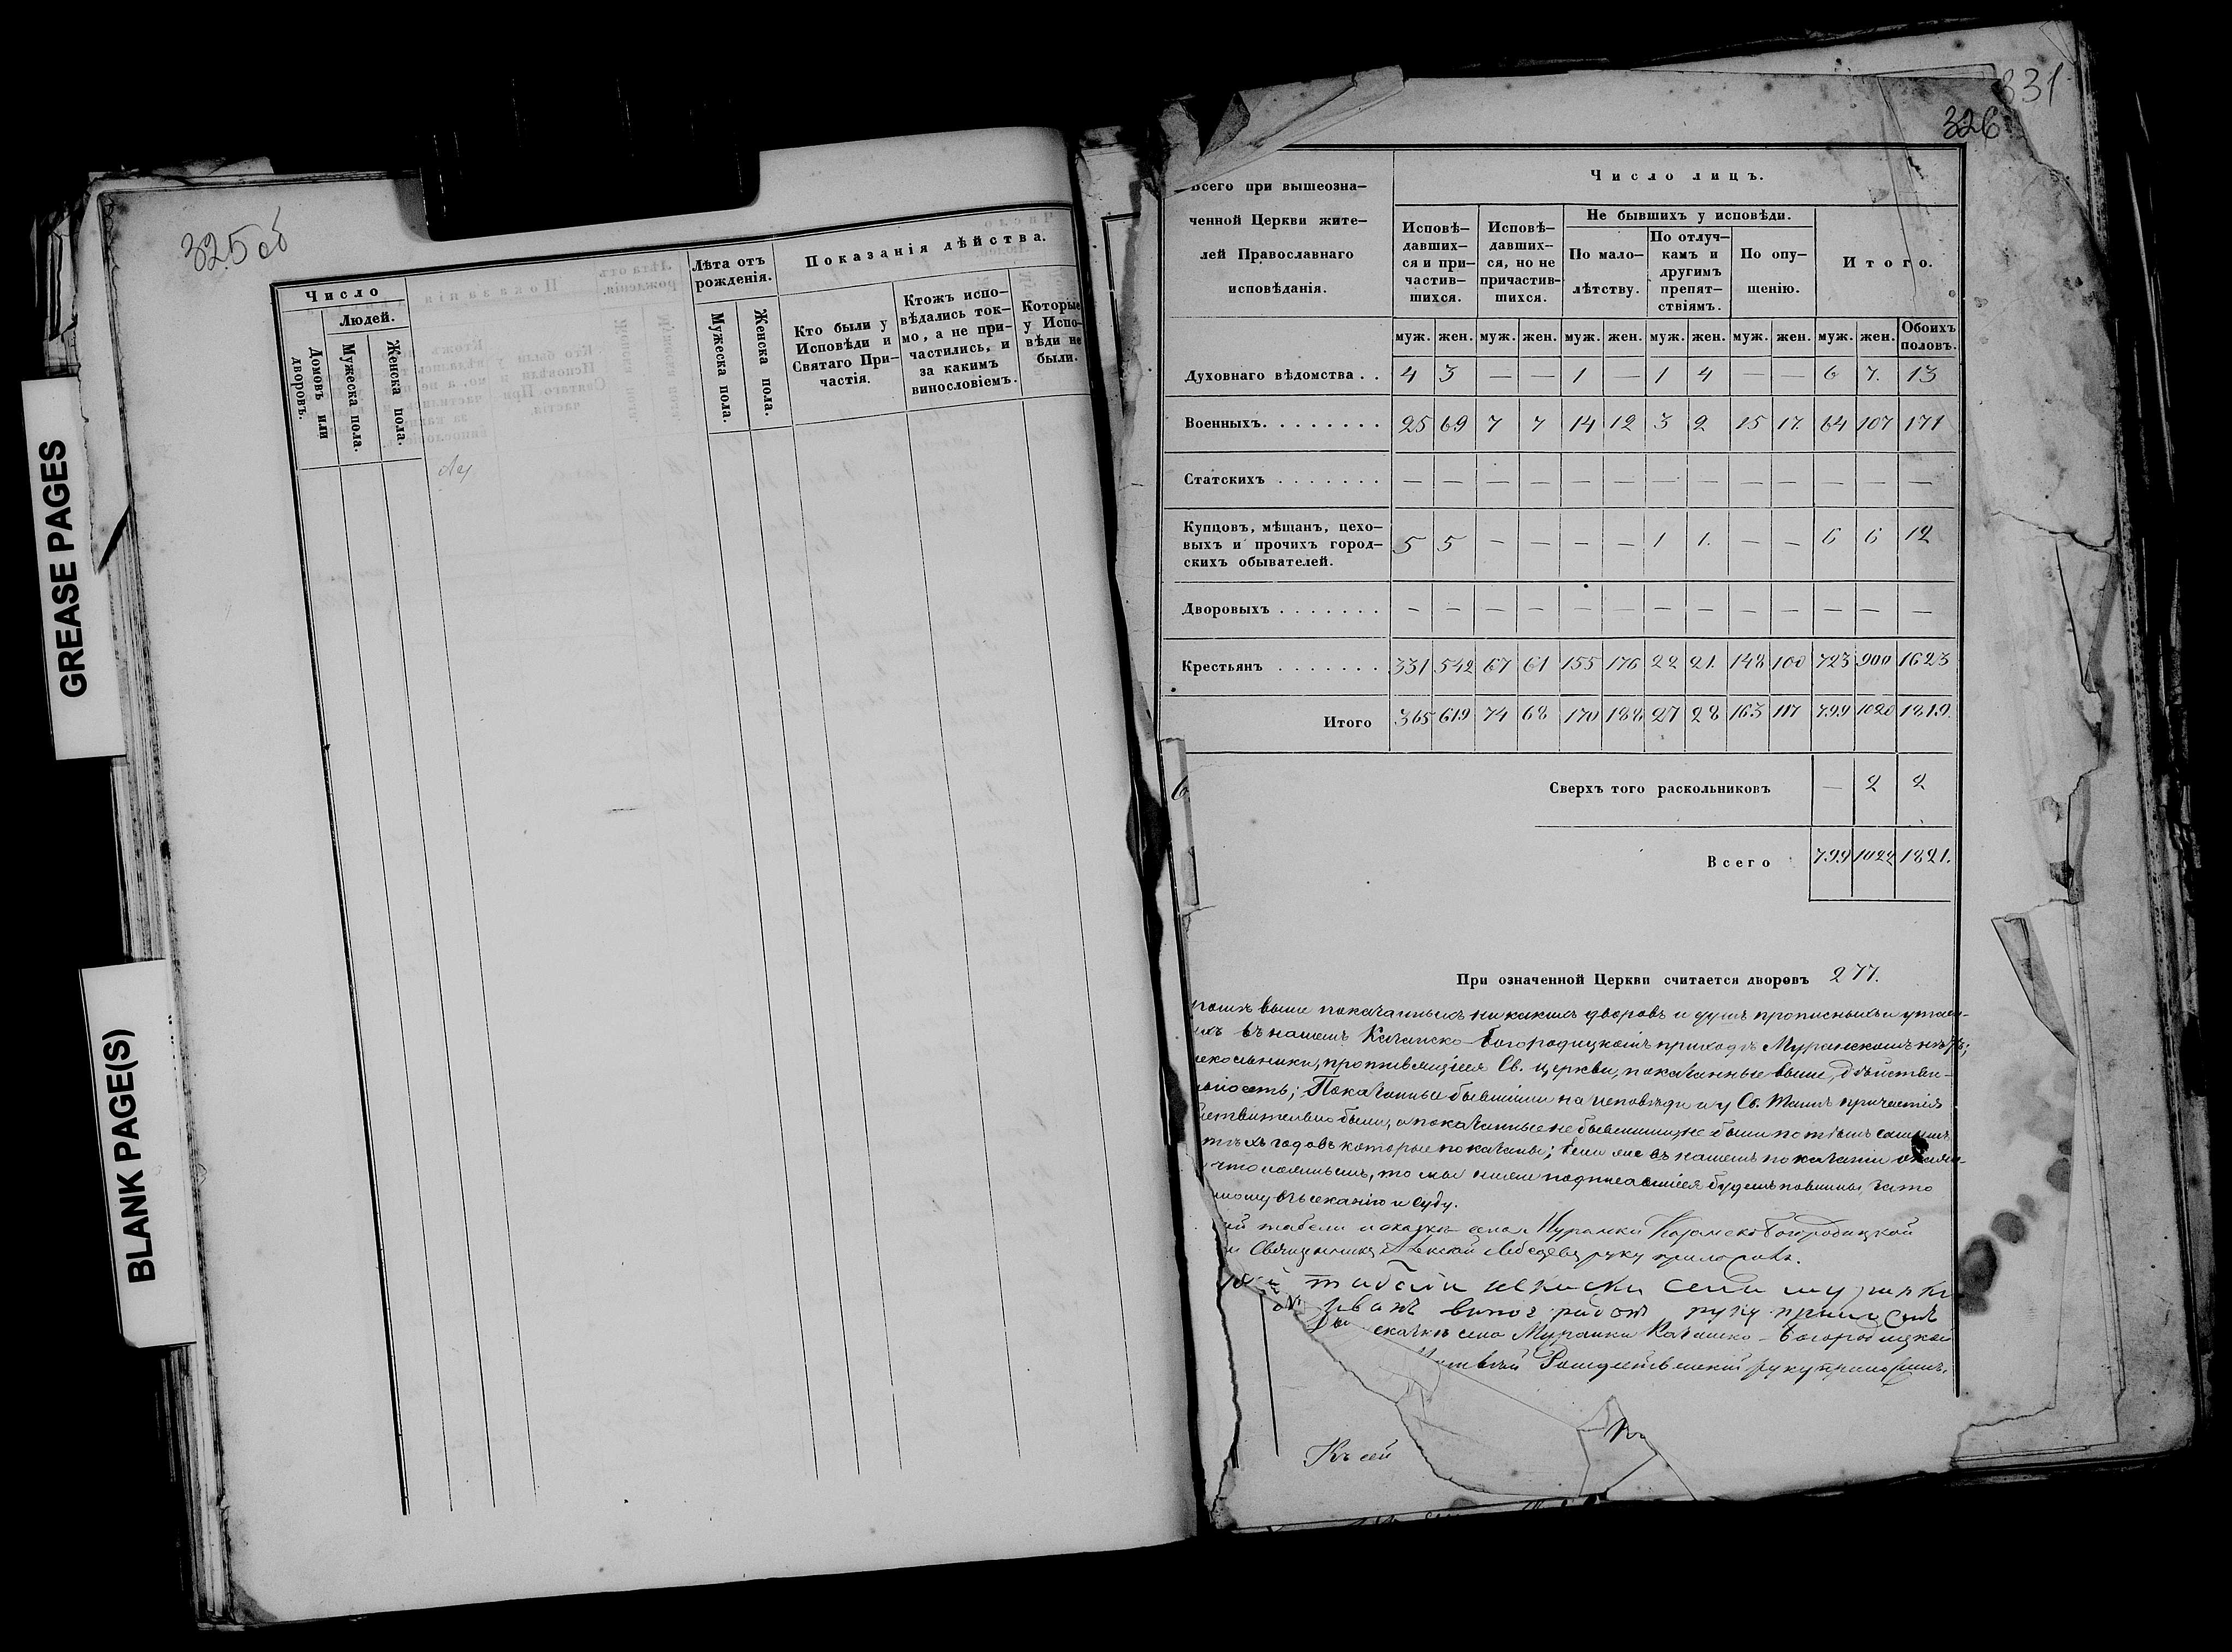 GREASE PAGES
BLANK PAGE(S)
325 об
Число
Людей.
Домовъ или дворовъ.
Мужеска пола.
Женска пола.
Лѣта отъ рожденія.
Мужеска пола.
Женска пола.
Показанія дѣйства.
Кто были у Исповѣди и Святаго При-
частія.
Ктожъ испо-
вѣдались ток-
мо, а не при-
частились, и
за какимъ
винословіемъ.
Которые
у Испо-
вѣди не
были.
331
326
Всего при вышеозна-
ченной Церкви жите-
лей Православнаго
исповѣданія.
Число лицъ.
Исповѣ-
давших-
ся и при-
частив-
шихся.
Исповѣ-
давших-
ся, но не
причастив-
шихся.
Не бывшихъ у исповѣди.
По мало-
лѣтству.
По отлуч-
камъ и
другимъ
препят-
ствіямъ.
По опу-
щенію.
Итого.
муж. жен. муж. жен. муж. жен. муж. жен. муж. жен. муж. жен. Обоихъ половъ.
Духовнаго вѣдомства . . 4 3 — — 1 — 1 4 — — 6 7. 13
Военныхъ. . . . . . . . 25 69 7 7 14 12 3 2 15 17. 64 107 171
Статскихъ . . . . . . . — — — — — — — — — — — — —
Купцовъ, мѣщанъ, цехо-
выхъ и прочихъ город-
скихъ обывателей. 5 5 — — — — 1 1. — — 6 6 12
Дворовыхъ . . . . . . . — — — — — — — — — — — — —
Крестьянъ . . . . . . . 331 542 67 61 155 176 22 21. 148 100 723 900 1623
Итого 365 619 74 68 170 188 27 28 163 117 799 1020 1819.
Сверхъ того раскольниковъ — 2 2
Всего 799 1022 1821.
При означенной Церкви считается дворовъ 277.
выше показанныхъ никакихъ дворовъ и душъ прописныхъ и утаен-
въ нашемъ Казанско-Богородицкомъ приходѣ Муранскомъ нѣтъ;
противящіеся Св. церкви, показанные выше, дѣйстви-
Показанные бывшими на исповѣди и у Св. Таинъ причастія
были, а показанные не бывшими, не были по тѣмъ самымъ
годовъ которые показаны; Если же въ нашемъ показаніи
то мы ниже подписавшіеся будемъ повинны за то
взысканію и суду.
табели и сказкѣ села Муранки Казанско Богородицкой
Священникъ Алексѣй Лебедевъ руку приложилъ.
табели и скаски села муранки
Иванъ руку приложилъ
сказкѣ села Муранки Казанско-Богородицкой
Рождественскій руку приложилъ.
Къ сей